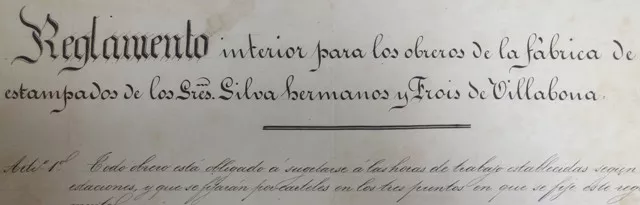 Reglamento interior para los obreros de la fábrica de
estampados de los Sres. Silva hermanos y Frois de Villabona.
Artº 1º Todo obrero está obligado á sugetarse á las horas de trabajo establecidas según
estaciones, y que se fijarán por carteles en los tres puntos en que se fije este reg